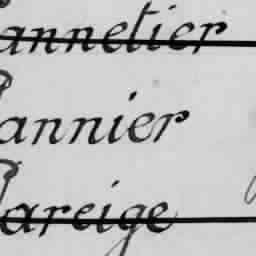 Pannetier
Pannier
Pareige